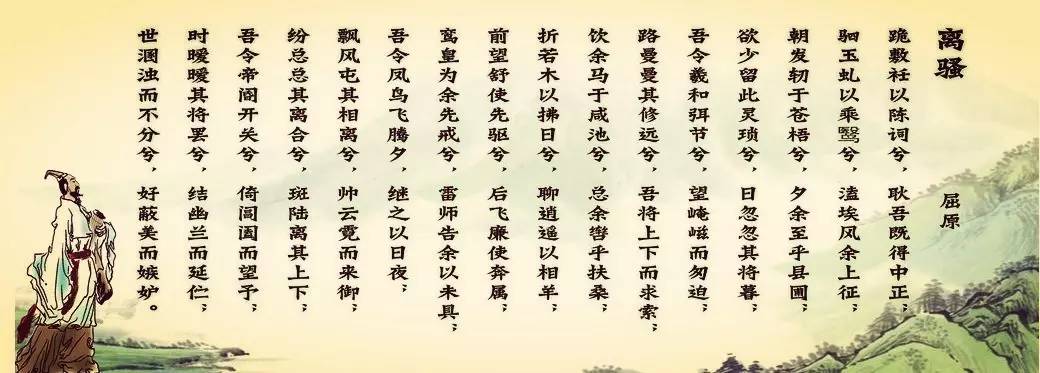 离骚 屈原
跪敷衽以陈词兮，耿吾既得中正；
驷玉虬以乘鹥兮，溘埃风余上征；
朝发轫于苍梧兮，夕余至乎县圃；
欲少留此灵琐兮，日忽忽其将暮；
吾令羲和弭节兮，望崦嵫而勿迫；
路曼曼其修远兮，吾将上下而求索；
饮余马于咸池兮，总余辔乎扶桑；
折若木以拂日兮，聊逍遥以相羊；
前望舒使先驱兮，后飞廉使奔属；
鸾皇为余先戒兮，雷师告余以未具；
吾令凤鸟飞腾夕，继之以日夜；
飘风屯其相离兮，帅云霓而来御；
纷总总其离合兮，斑陆离其上下；
吾令帝阍开关兮，倚阊阖而望予；
时暧暧其将罢兮，结幽兰而延伫；
世溷浊而不分兮，好蔽美而嫉妒。